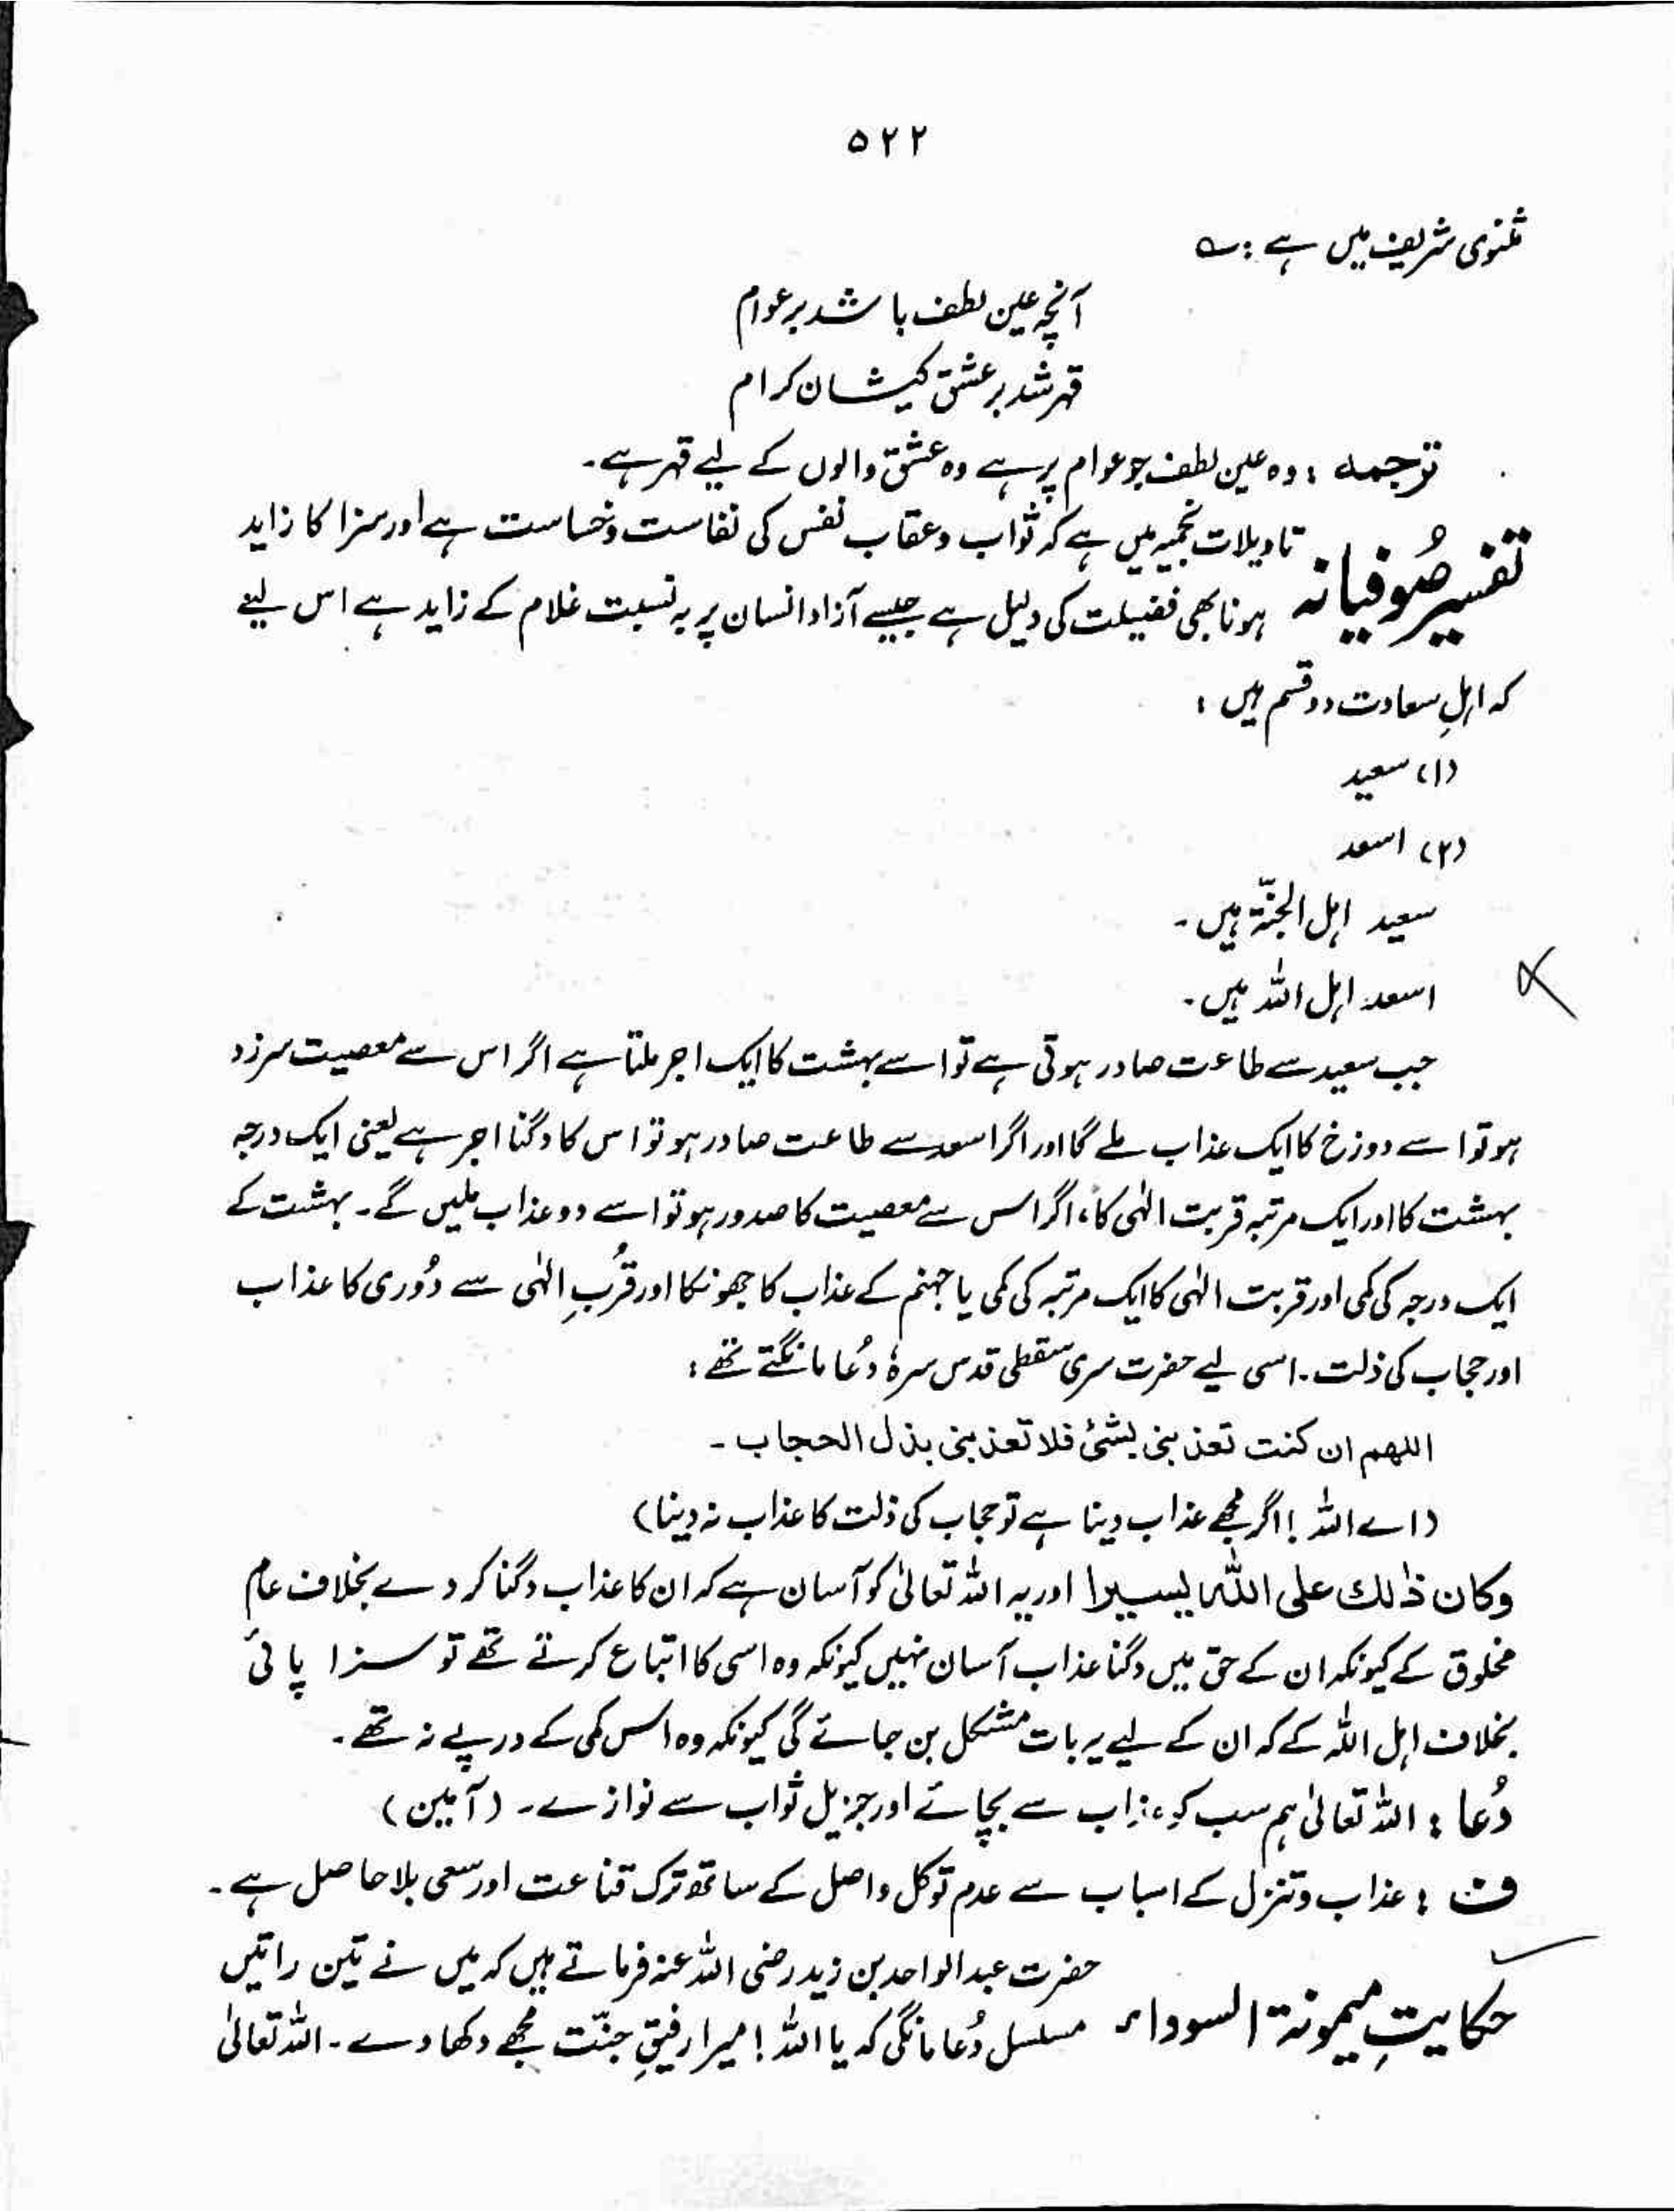 ۵۲۲
مثنوی شریف میں ہے : ؎
آنچہ عین لطف باشد بر عوام
قہر شد بر عشق کیشان کرام
ترجمہ : وہ عین لطف جو عوام پر ہے وہ عشق والوں کے لیے قہر ہے۔
تفسیر صُوفیانہ تاویلات نجمیہ میں ہے کہ ثواب و عقاب نفس کی نفاست و خساست ہے اور سزا کا زاید
ہونا بھی فضیلت کی دلیل ہے جیسے آزاد انسان پر بہ نسبت غلام کے زاید ہے اس لیے
کہ اہلِ سعادت دو قسم ہیں :
(۱) سعید
(۲) اسعد
سعید اہل الجنّۃ ہیں۔
اسعد اہل اللہ ہیں۔
جب سعید سے طاعت صادر ہوتی ہے تو اسے بہشت کا ایک اجر ملتا ہے اگر اس سے معصیت سرزد
ہو تو اسے دوزخ کا ایک عذاب ملے گا اور اگر اسعد سے طاعت صادر ہو تو اس کا دگنا اجر ہے یعنی ایک درجہ
بہشت کا اور ایک مرتبہ قربت الٰہی کا، اگر اس سے معصیت کا صدور ہو تو اسے دو عذاب ملیں گے۔ بہشت کے
ایک درجہ کی کمی اور قربت الٰہی کا ایک مرتبہ کی کمی یا جہنم کے عذاب کا جھونکا اور قُربِ الٰہی سے دُوری کا عذاب
اور حجاب کی ذلت۔ اسی لیے حضرت سری سقطی قدس سرہٗ دُعا مانگتے تھے :
اللھم ان کنت تعذبنی بشئ فلا تعذبنی بذل الحجاب۔
(اے اللہ ! اگر مجھے عذاب دینا ہے تو حجاب کی ذلت کا عذاب نہ دینا)
وکان ذٰلك علی اللہ یسیرا اور یہ اللہ تعالیٰ کو آسان ہے کہ ان کا عذاب دگنا کر دے بخلاف عام
مخلوق کے کیونکہ ان کے حق میں دگنا عذاب آسان نہیں کیونکہ وہ اسی کا اتباع کرتے تھے تو سزا پائی
بخلاف اہل اللہ کے کہ ان کے لیے یہ بات مشکل بن جائے گی کیونکہ وہ اس کمی کے درپے نہ تھے۔
دُعا : اللہ تعالیٰ ہم سب کو عذاب سے بچائے اور جزیل ثواب سے نوازے۔ (آمین)
ف : عذاب و تنزل کے اسباب سے عدم توکل و اصل کے ساتھ ترک قناعت اور سعی بلا حاصل ہے۔
حکایتِ میمونۃ السوداء حضرت عبد الواحد بن زید رضی اللہ عنہ فرماتے ہیں کہ میں نے تین راتیں
مسلسل دُعا مانگی کہ یا اللہ ! میرا رفیقِ جنّت مجھے دکھا دے۔ اللہ تعالیٰ